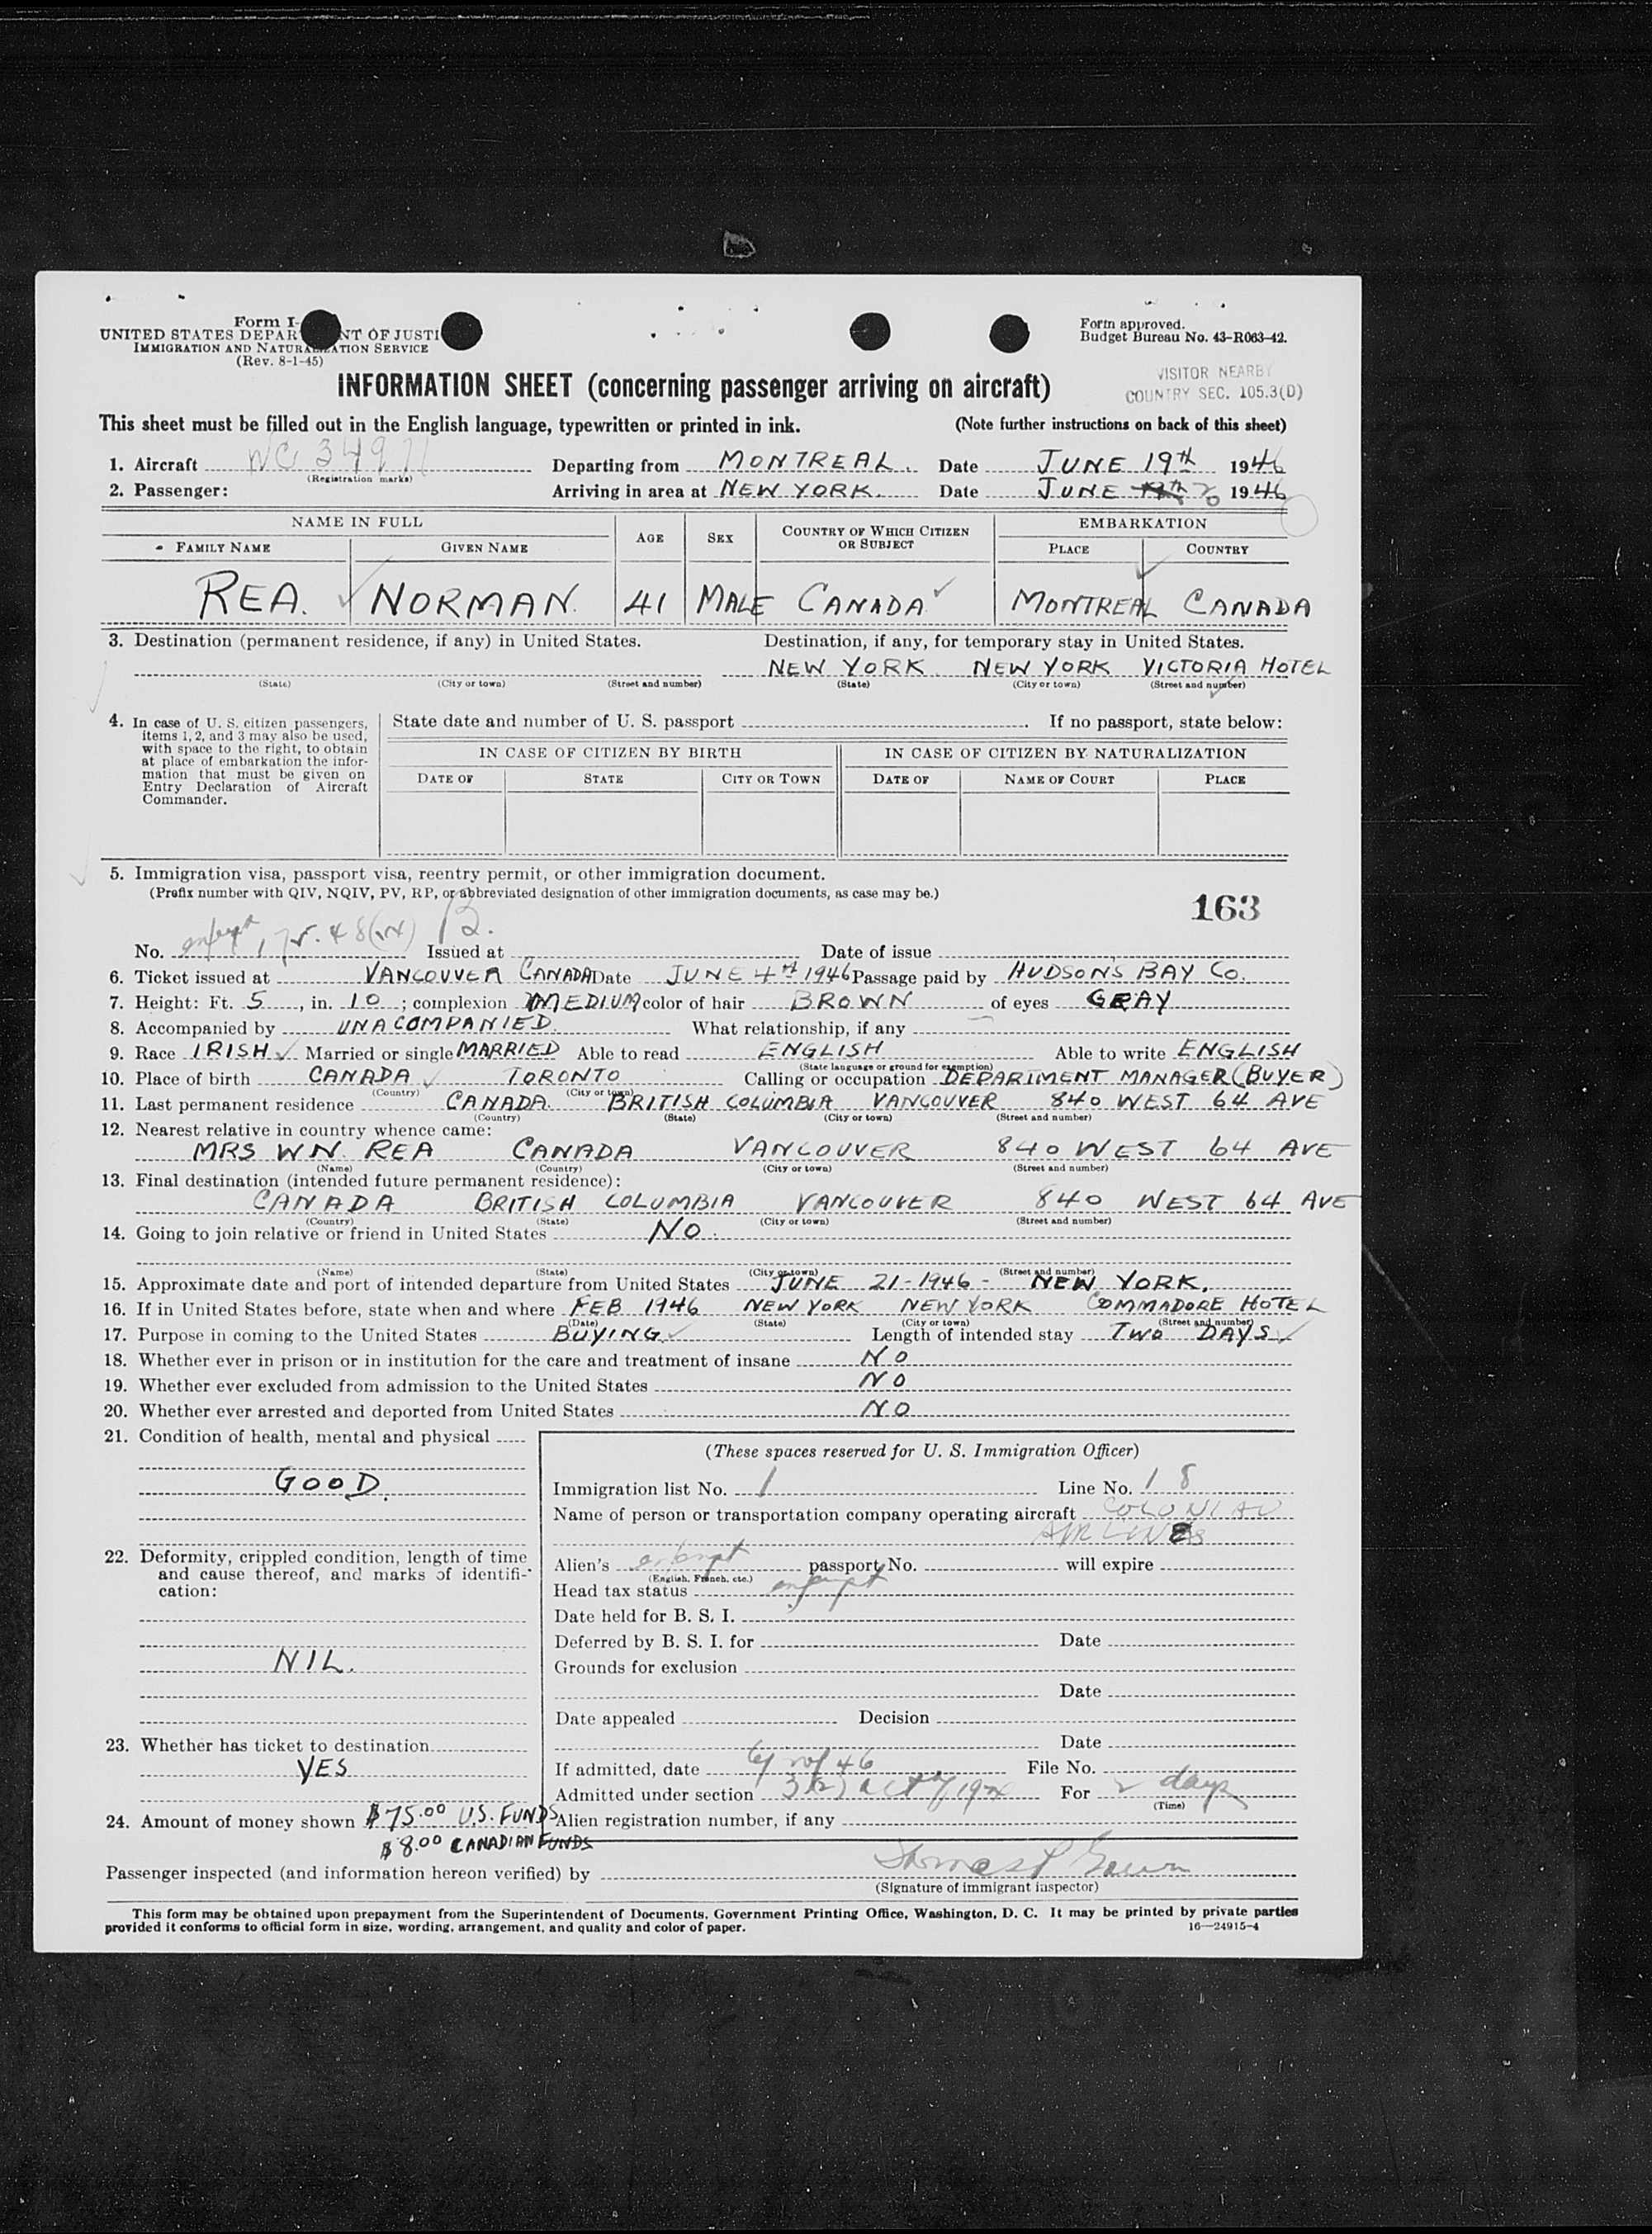 Form I-
UNITED STATES DEPAR NT OF JUSTI
IMMIGRATION AND NATURALIZATION SERVICE
(Rev. 8-1-45)
Form approved.
Budget Bureau No. 43-R063-42.
INFORMATION SHEET (concerning passenger arriving on aircraft)
VISITOR NEARBY
COUNTRY SEC. 105.3(D)
This sheet must be filled out in the English language, typewritten or printed in ink. (Note further instructions on back of this sheet)
1. Aircraft NC 34971 Departing from MONTREAL. Date JUNE 19TH 1946
(Registration marks)
2. Passenger: Arriving in area at NEW YORK. Date JUNE 20 1946
NAME IN FULL AGE SEX COUNTRY OF WHICH CITIZEN OR SUBJECT EMBARKATION
FAMILY NAME GIVEN NAME PLACE COUNTRY
REA. NORMAN. 41 MALE CANADA MONTREAL CANADA
3. Destination (permanent residence, if any) in United States. Destination, if any, for temporary stay in United States.
NEW YORK. NEW YORK VICTORIA HOTEL
(State) (City or town) (Street and number) (State) (City or town) (Street and number)
4. In case of U. S. citizen passengers, items 1, 2, and 3 may also be used, with space to the right, to obtain at place of embarkation the information that must be given on Entry Declaration of Aircraft Commander.
State date and number of U. S. passport . If no passport, state below:
IN CASE OF CITIZEN BY BIRTH IN CASE OF CITIZEN BY NATURALIZATION
DATE OF STATE CITY OR TOWN DATE OF NAME OF COURT PLACE
5. Immigration visa, passport visa, reentry permit, or other immigration document.
(Prefix number with QIV, NQIV, PV, RP, or abbreviated designation of other immigration documents, as case may be.)
163
No. B. Issued at Date of issue
6. Ticket issued at VANCOUVER CANADA Date JUNE 4TH 1946 Passage paid by HUDSON'S BAY CO.
7. Height: Ft. 5, in. 10; complexion MEDIUM color of hair BROWN of eyes GRAY
8. Accompanied by UNACOMPANIED. What relationship, if any
9. Race IRISH Married or single MARRIED Able to read ENGLISH Able to write ENGLISH
(State language or ground for exemption)
10. Place of birth CANADA TORONTO Calling or occupation DEPARTMENT MANAGER (BUYER)
(Country) (City or town)
11. Last permanent residence CANADA. BRITISH COLUMBIA VANCOUVER 840 WEST 64 AVE
(Country) (State) (City or town) (Street and number)
12. Nearest relative in country whence came:
MRS W N. REA CANADA VANCOUVER 840 WEST 64 AVE
(Name) (Country) (City or town) (Street and number)
13. Final destination (intended future permanent residence):
CANADA BRITISH COLUMBIA VANCOUVER 840 WEST 64 AVE
(Country) (State) (City or town) (Street and number)
14. Going to join relative or friend in United States NO.
(Name) (State) (City or town) (Street and number)
15. Approximate date and port of intended departure from United States JUNE 21-1946- NEW YORK.
16. If in United States before, state when and where FEB 1946 NEW YORK NEW YORK COMMADORE HOTEL
(Date) (State) (City or town) (Street and number)
17. Purpose in coming to the United States BUYING Length of intended stay TWO DAYS
18. Whether ever in prison or in institution for the care and treatment of insane NO
19. Whether ever excluded from admission to the United States NO
20. Whether ever arrested and deported from United States NO
21. Condition of health, mental and physical
GOOD.
22. Deformity, crippled condition, length of time and cause thereof, and marks of identification:
NIL.
23. Whether has ticket to destination
YES
24. Amount of money shown $75.00 U.S. FUNDS
$8.00 CANADIAN FUNDS
(These spaces reserved for U. S. Immigration Officer)
Immigration list No. 1 Line No. 18
Name of person or transportation company operating aircraft COLONIAL
AIRLINES
Alien's exempt passport No. will expire
(English, French, etc.)
Head tax status exempt
Date held for B. S. I.
Deferred by B. S. I. for Date
Grounds for exclusion
Date
Date appealed Decision
Date
If admitted, date 6/20/46 File No.
Admitted under section 3(2) act of 1924 For 2 days
(Time)
Alien registration number, if any
Passenger inspected (and information hereon verified) by
(Signature of immigrant inspector)
This form may be obtained upon prepayment from the Superintendent of Documents, Government Printing Office, Washington, D. C. It may be printed by private parties
provided it conforms to official form in size, wording, arrangement, and quality and color of paper. 16—24915-4